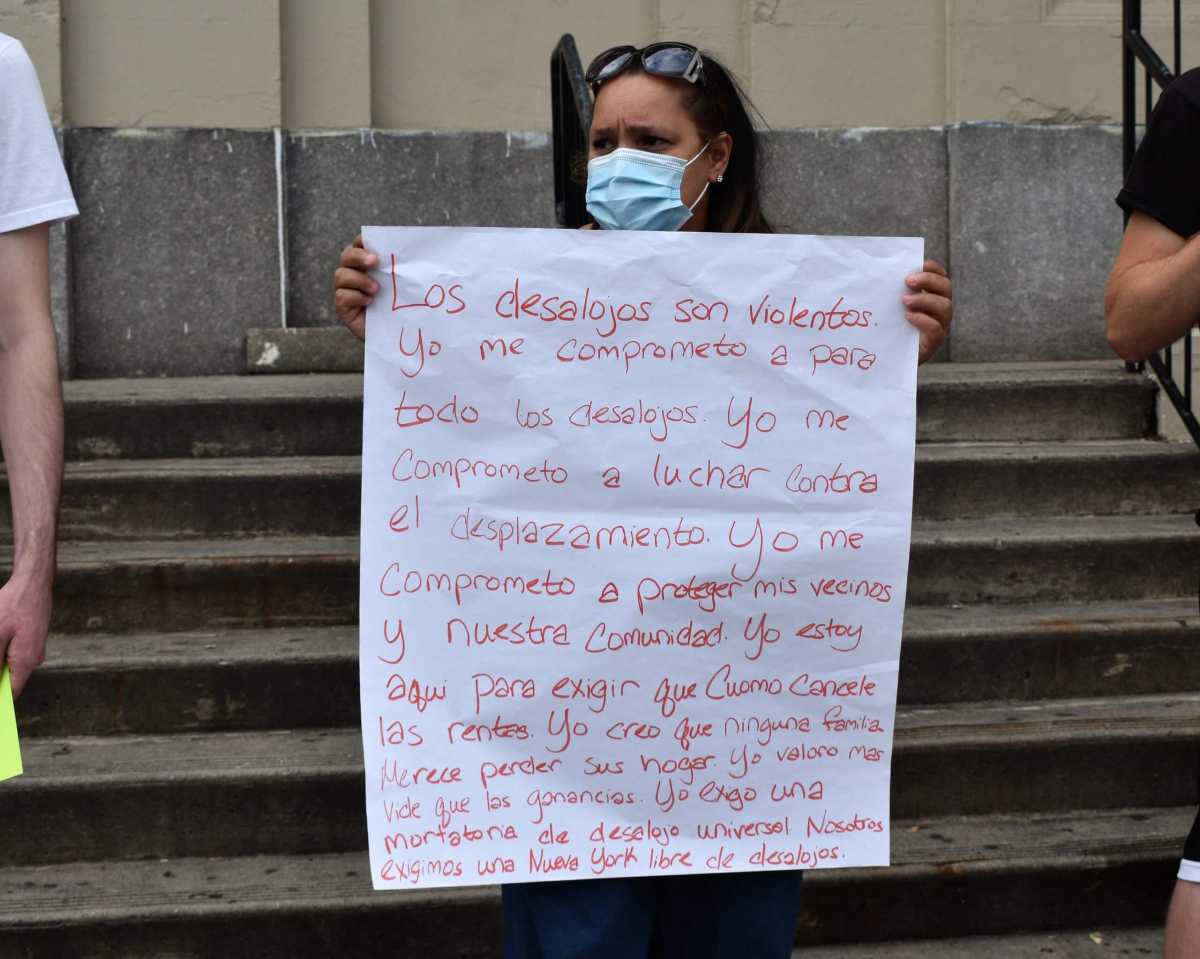 Los desalojos son violentos.
Yo me comprometo a para
todo los desalojos. Yo me
comprometo a luchar contra
el desplazamiento. Yo me
comprometo a proteger mis vecinos
y nuestra comunidad. Yo estoy
aqui para exigir que Cuomo cancele
las rentas. Yo creo que ninguna familia
Merece perder sus hogar. Yo valoro mas
vide que las ganancias. Yo exigo una
morfatoria de desalojo universal. Nosotros
exigimos una Nueva York libre de desalojos.